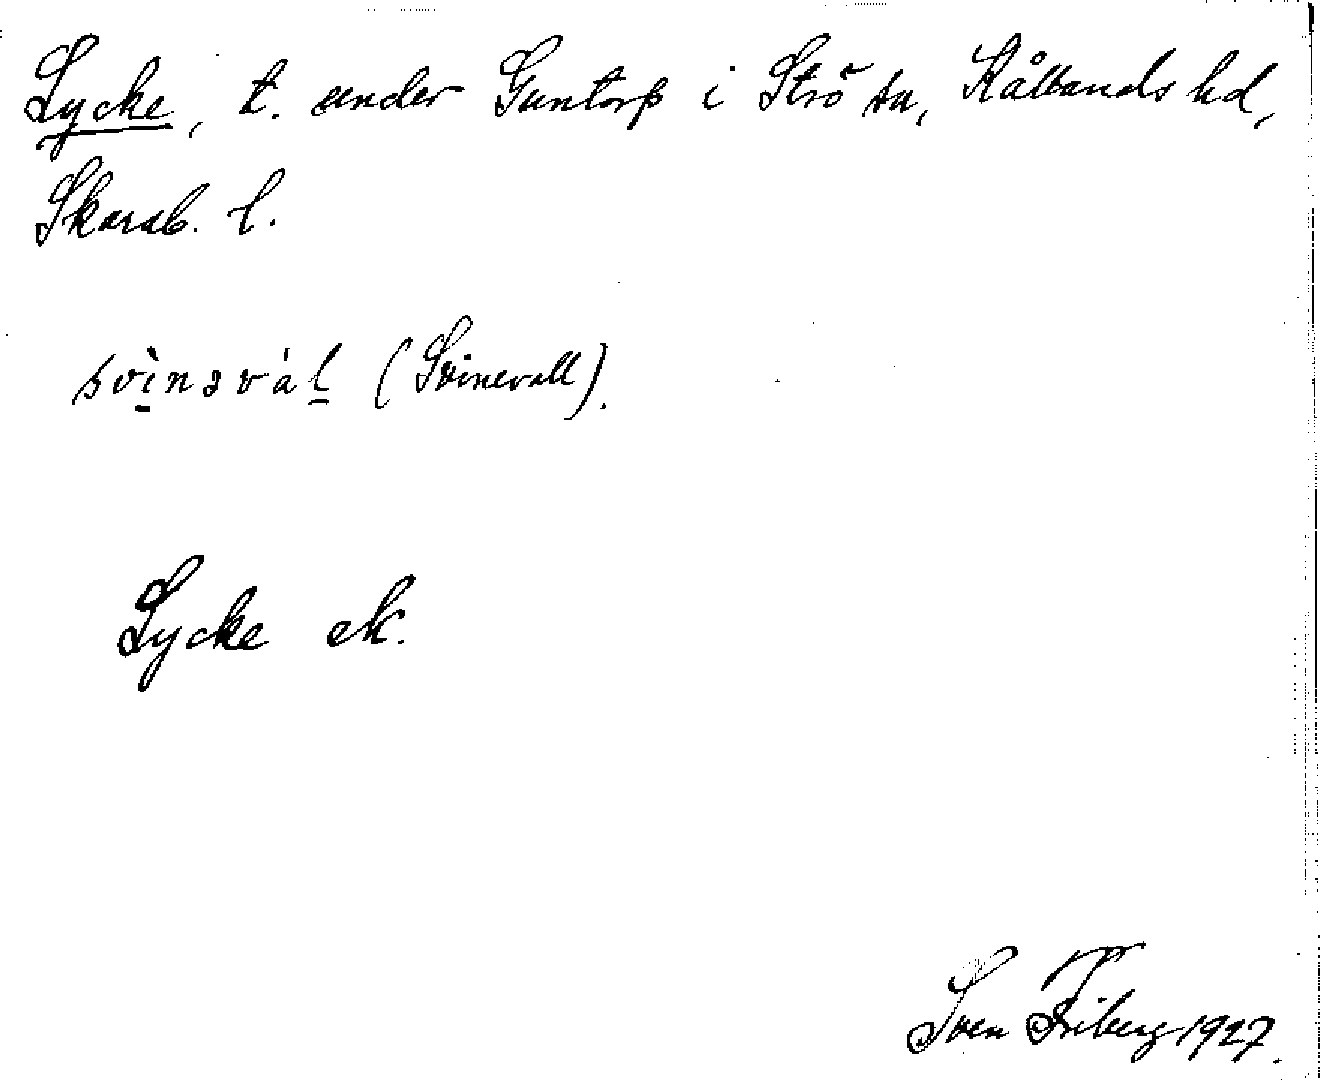 Lycke, t. under Guntorp i Strö sn, Kållands hd,
Skarab. l.
svìnəvál (Svinevall).
Lycke ek.
Sven Friberg 1927.